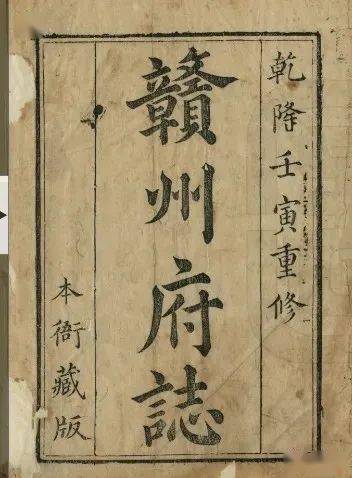 乾隆壬寅重修
贛州府誌
本衙藏版